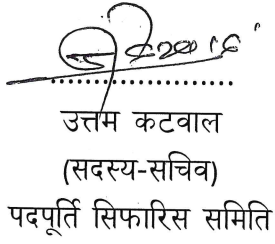 उत्तम कटवाल
(सदस्य-सचिव)
पदपूर्ति सिफारिस समिति